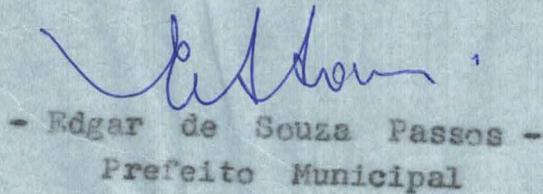 - Edgar de Souza Passos -
Prefeito Municipal